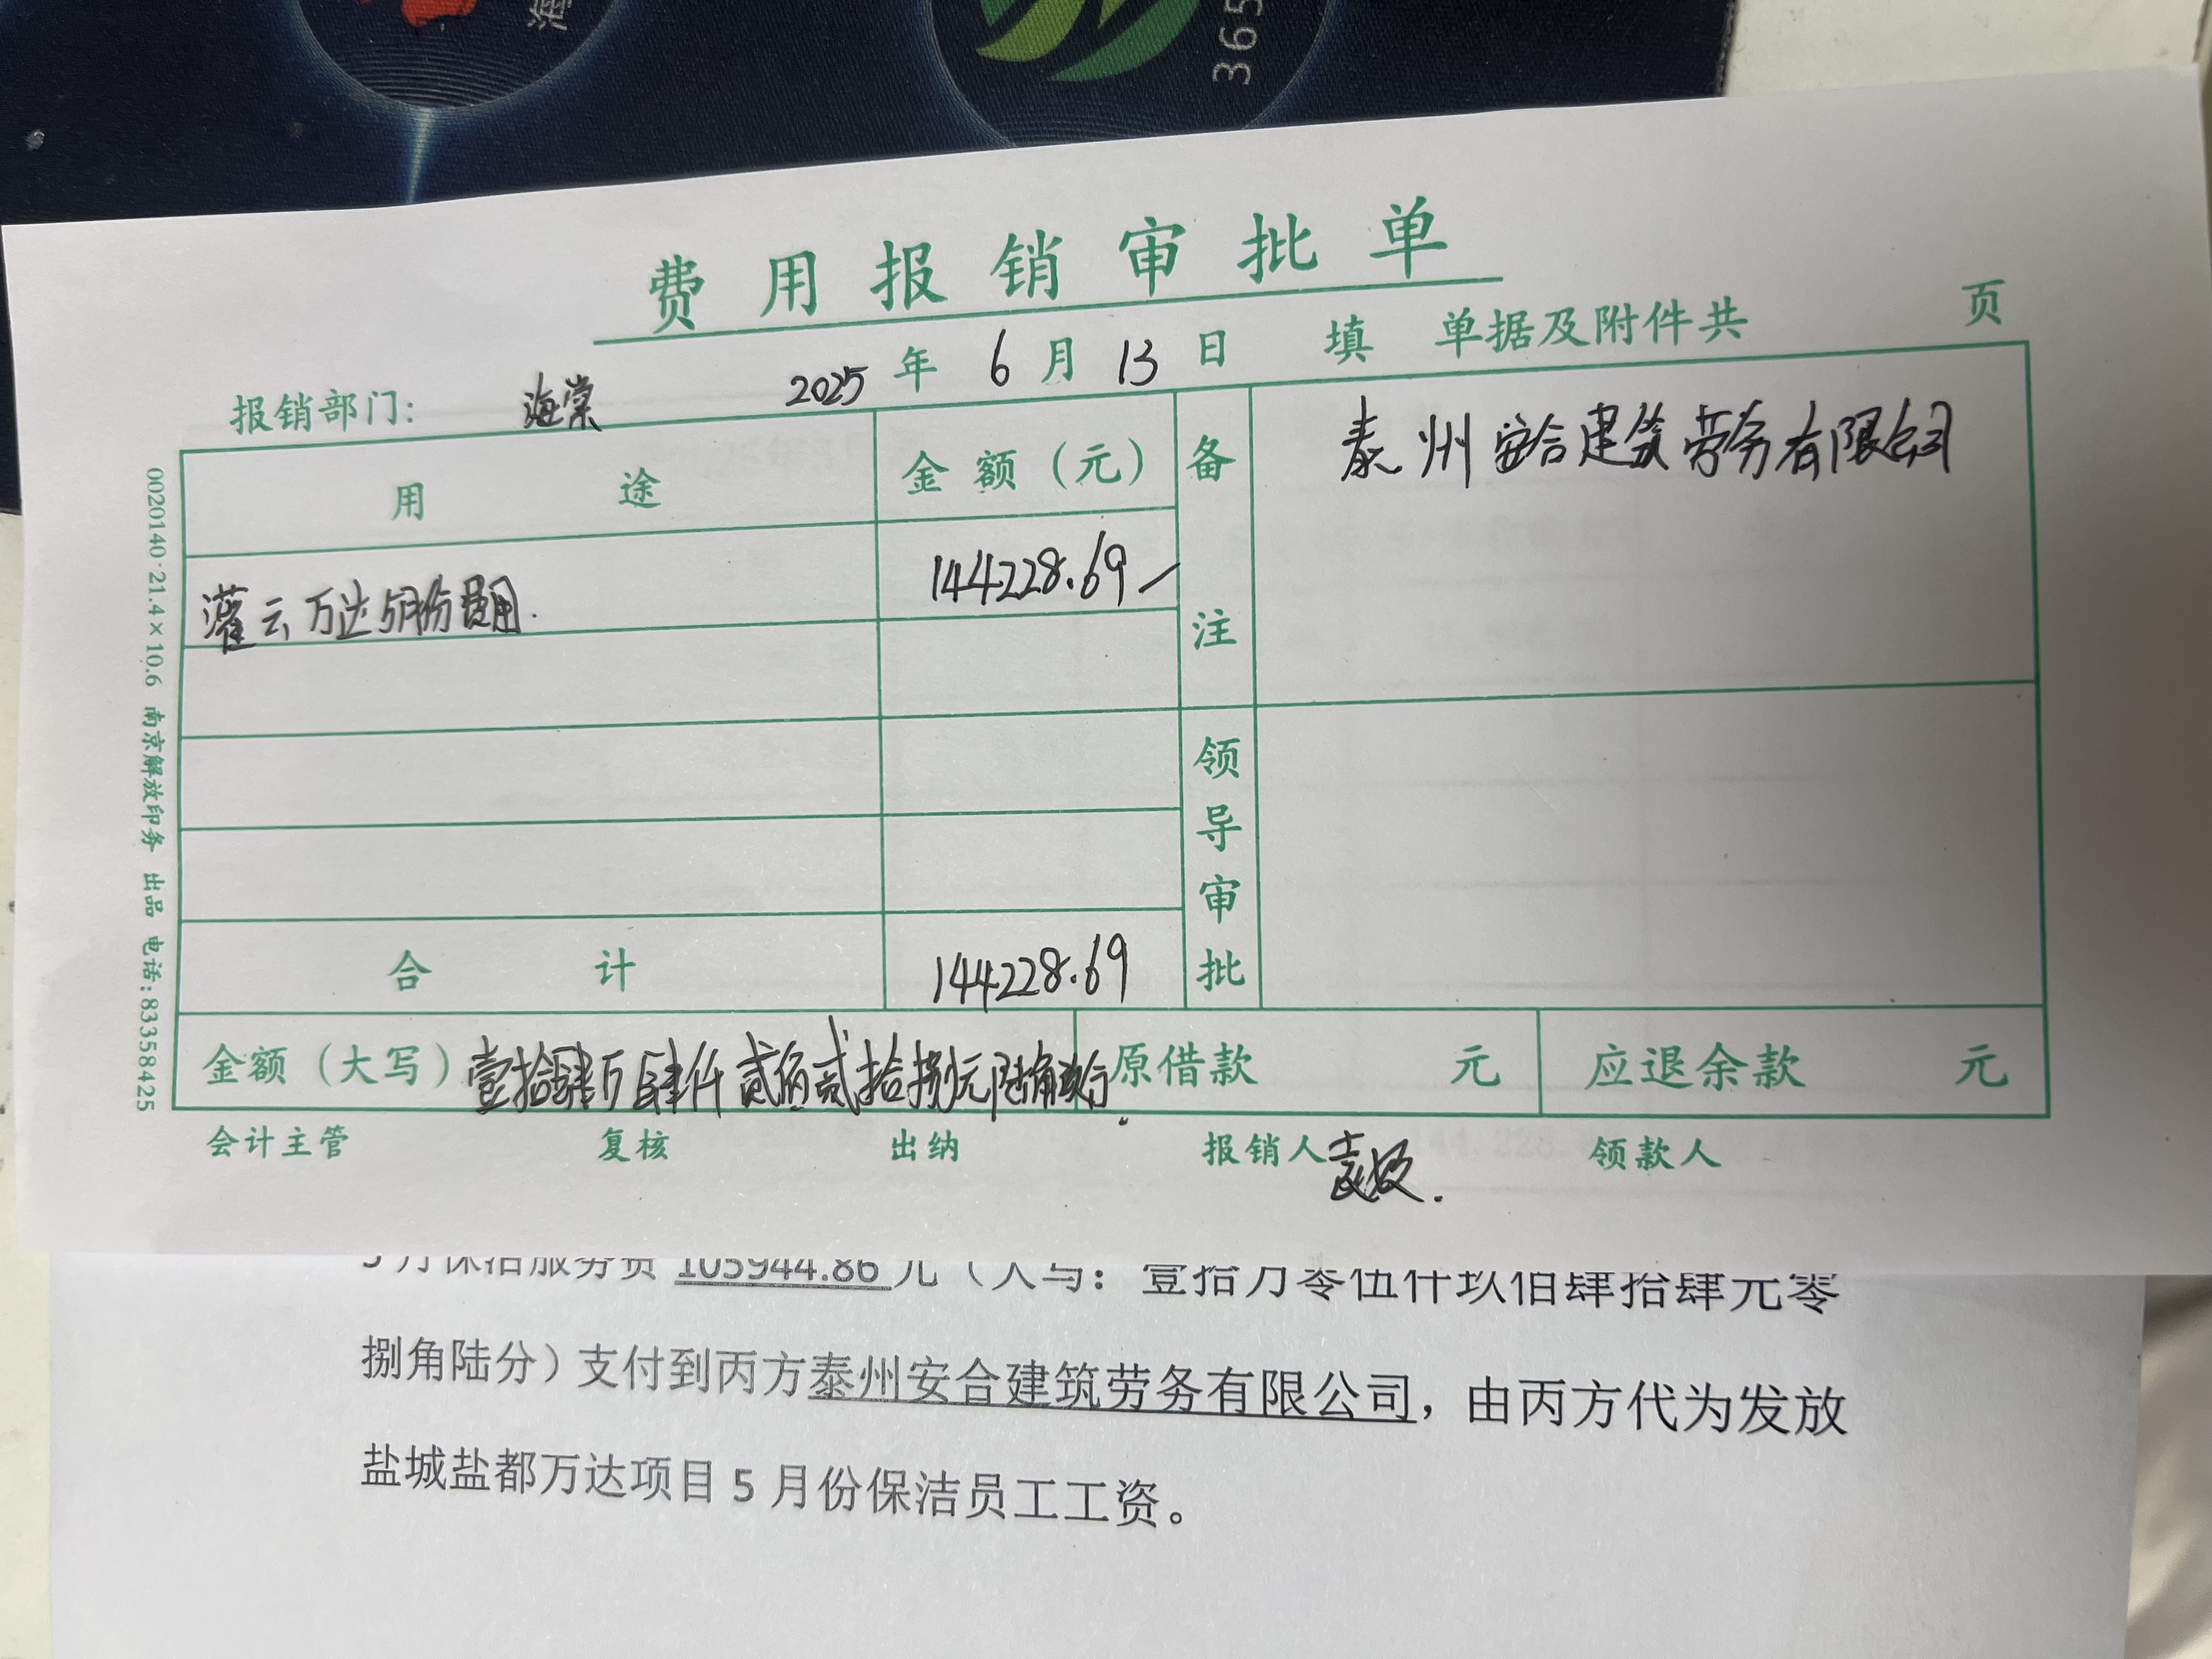 海
365
费用报销审批单
报销部门: 海棠 2025 年 6 月 13 日 填 单据及附件共 页
用途 金额（元） 备注 泰州安合建筑劳务有限公司
灌云万达5月份费用. 144228.69
领导审批
合计 144228.69
金额（大写）壹拾肆万肆仟贰佰贰拾捌元陆角玖分. 原借款 元 应退余款 元
会计主管 复核 出纳 报销人 领款人
0020140·21.4×10.6 南京解放印务 出品 电话:83358425
5月保洁服务费 105944.86 元（大写：壹拾万零伍仟玖佰肆拾肆元零
捌角陆分）支付到丙方泰州安合建筑劳务有限公司，由丙方代为发放
盐城盐都万达项目 5 月份保洁员工工资。